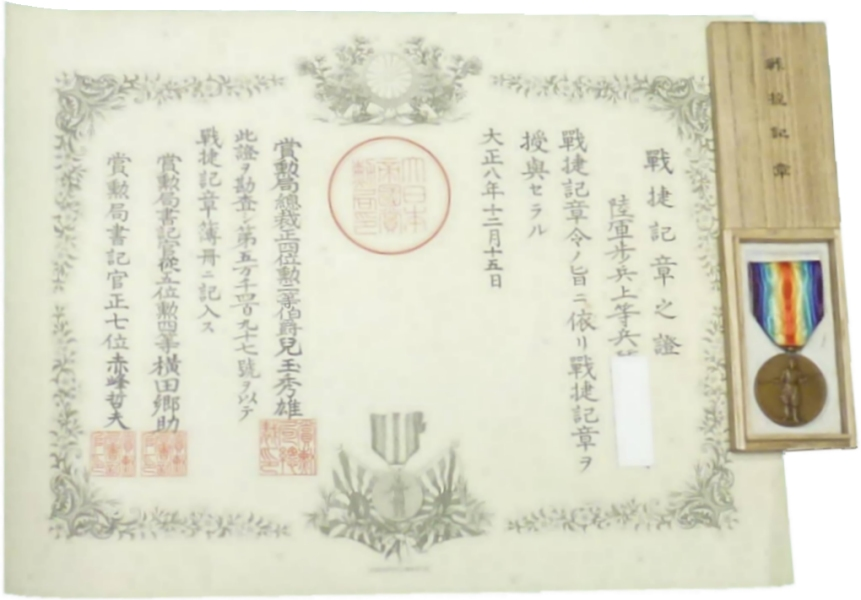 戰捷記章之證
陸軍步兵上等兵
戰捷記章令ノ旨ニ依リ戰捷記章ヲ
授與セラル
大正八年十二月十五日
大日本
帝國賞
勳局印
賞勲局總裁正四位勲二等伯爵兒玉秀雄
此證ヲ勘查シ第五万千四百九十七號ヲ以テ
戰捷記章薄冊ニ記入ス
賞勲局書記官從五位勲四等橫田郷助
賞勲局書記官正七位赤峰哲夫
戰捷記章